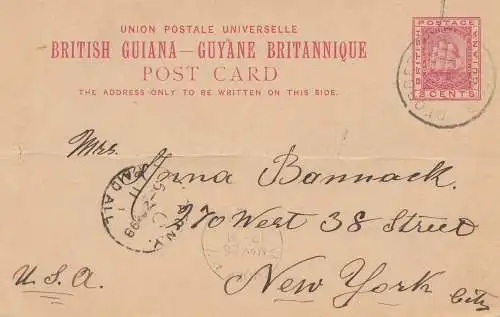 UNION POSTALE UNIVERSELLE
BRITISH GUIANA—GUYANE BRITANNIQUE
POST CARD
THE ADDRESS ONLY TO BE WRITTEN ON THIS SIDE.
POSTAGE
BRITISH
GUIANA
2 CENTS
Mrs. Anna Bannack
270 West 38 Street
New York
City
U.S.A.